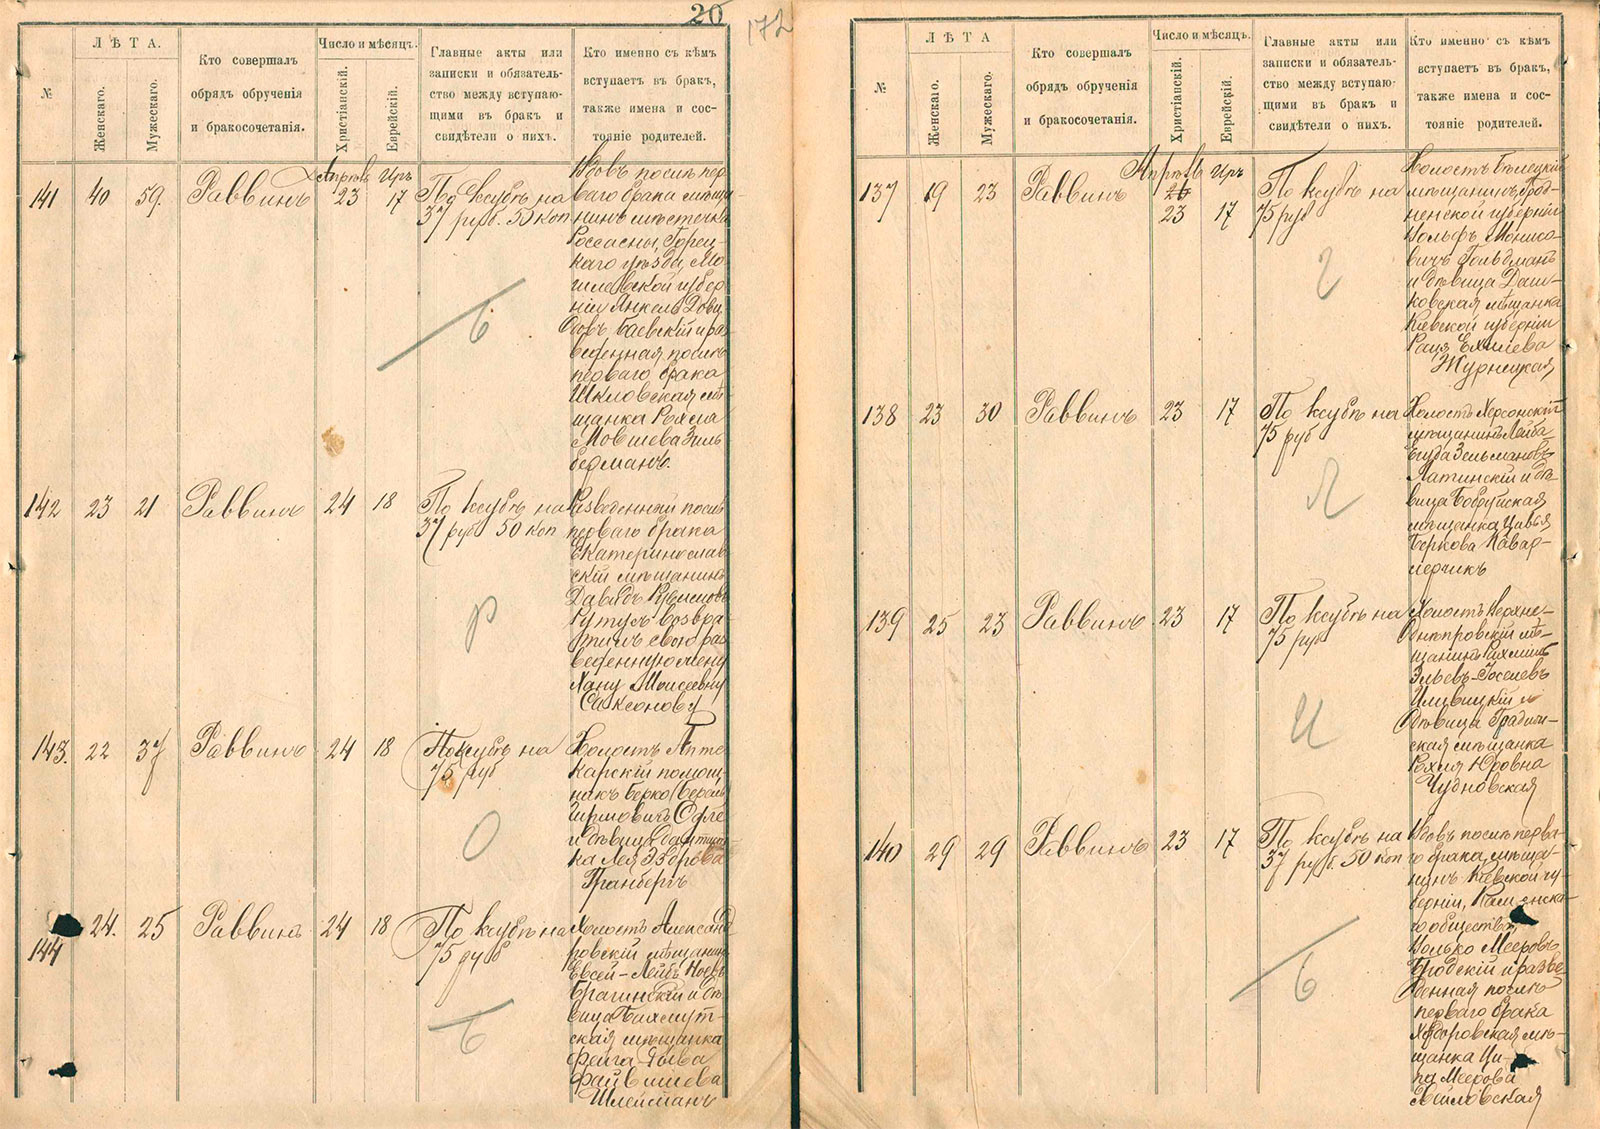 20
172
№
ЛѢТА.
Женскаго.
Мужескаго.
Кто совершалъ
обрядъ обрученія
и бракосочетанія.
Число и мѣсяцъ.
Христіанскій.
Еврейскій.
Главные акты или
записки и обязатель-
ство между вступаю-
щими въ бракъ и
свидѣтели о нихъ.
Кто именно съ кѣмъ
вступаетъ въ бракъ,
также имена и сос-
тояніе родителей.
141
40
59.
Раввинъ
Апрѣль
23
Иръ
17
По ксубѣ на
37 руб. 50 коп
Вдовъ послѣ пер
ваго брака мѣща
нинъ мѣстечка
Россасны, Горец-
каго уѣзда, Мо
гилевской губер
ніи Янкель Дови
довъ Баевскій и ра
веденная послѣ
перваго брака
Шкловская мѣ
щанка Рохля
Мовшева Зиль
берманъ.
142
23
21
Раввинъ
24
18
По ксубѣ на
37 руб 50 коп
Разведенный послѣ
перваго брака
Екатеринослав
скій мѣщанинъ
Давидъ
возвра
тилъ свою раз
веденную жену
Хану Моисеевну
Саксонову
143.
22
37
Раввинъ
24
18
По ксубѣ на
75 руб
Холостъ Апте
карскій помощ
никъ Берко (Беръ
и дѣвица
ка Лея
Гранбергъ
144
24.
25
Раввинъ
24
18
По ксубѣ на
75 руб
Холостъ Александ
ровскій мѣщанинъ
Евсей-Лейбъ
Брагинскій и дѣ
вица Бахмут-
ская мѣщанка
Фейга-Дыва
Файвишева
Шлейманъ
№
ЛѢТА
Женскаго.
Мужескаго.
Кто совершалъ
обрядъ обрученія
и бракосочетанія.
Число и мѣсяцъ.
Христіанскій.
Еврейскій.
Главные акты или
записки и обязатель-
ство между вступаю-
щими въ бракъ и
свидѣтели о нихъ.
Кто именно съ кѣмъ
вступаетъ въ бракъ,
также имена и сос-
тояніе родителей.
137
19
23
Раввинъ
Апрѣль
23
Иръ
17
По ксубѣ на
75 руб
Холостъ Бѣлецкій
мѣщанинъ, Грод-
ненской губерніи
Вольфъ Мониса-
вичъ Гольдманъ
и дѣвица Даш-
ковская мѣщанка
Кіевской губерніи
Рауз Ехилева
Журницкая
138
23
30
Раввинъ
23
17
По ксубѣ на
75 руб
Холостъ Херсонскій
мѣщанинъ Лейба
Егуда Зельмановъ
Латинскій и дѣ
вица Бобруйская
мѣщанка Цивья
Беркова Кавар-
мерчикъ
139
25
23
Раввинъ
23
17
По ксубѣ на
75 руб
Холостъ Верхне-
днѣпровскій мѣ-
щанинъ Рахмиль
Эльевъ-Іоселевъ
и
дѣвица Градиж-
ская мѣщанка
Рохля Юровна
Чудновская
140
29
29
Раввинъ
23
17
По ксубѣ на
37 руб. 50 коп
Вдовъ послѣ перва-
го брака мѣща-
нинъ Кіевской гу-
берніи, Каменска-
го общества,
Волько Мееровъ
Бродскій и разве
денная послѣ
перваго брака
Ходоровская мѣ-
щанка Ци-
па Меерова